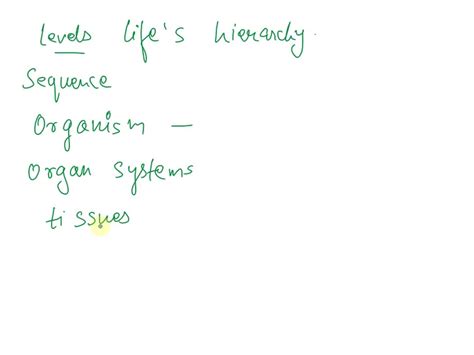 levels life's hierarchy.
Sequence
Organism —
Organ systems
tissues